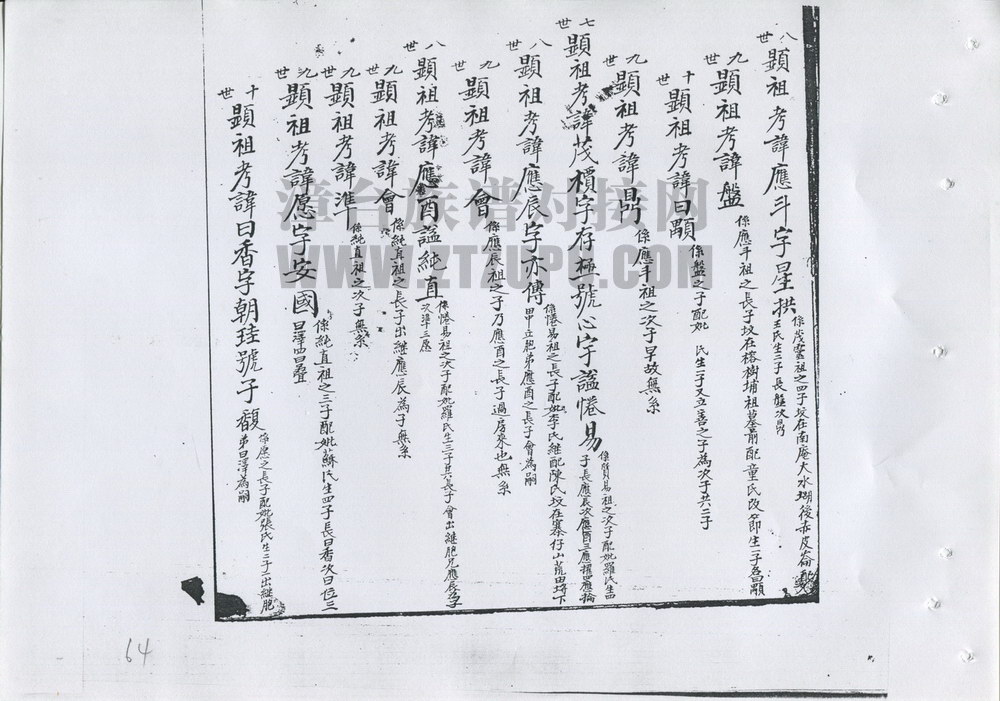 八世 顕祖考諱應斗字星拱 係茂雲祖之四子坟在南庵大水堀後赤皮崙配
王氏生二子長盤次鼎
九世 顕祖考諱盤 係應斗祖之長子坟在榕樹埔祖墓前配童氏改節生一子名曰顒
十世 顕祖考諱曰顒 係盤之子配妣 氏生二子又立善之子為次子共三子
九世 顕祖考諱鼎 係應斗祖之次子早故無系
七世 顕祖考諱茂櫝字存極號心字謚惓易 係賢易祖之次子配妣羅氏生四
子長應辰次應酉三應擢四應掄
八世 顕祖考諱應辰字亦傳 係惓易祖之長子配妣李氏継配陳氏坟在寨仔山荒田塆下
甲立胞弟應酉之長子會為嗣
九世 顕祖考諱會 係應辰祖之子乃應酉之長子過房來也無系
八世 顕祖考諱應酉謚純直 係惓易祖之次子配妣羅氏生三子其長子會出継胞兄應辰為子
次準三愿
九世 顕祖考諱會 係純直祖之長子出継應辰為子無系
九世 顕祖考諱準 係純直祖之次子無系
九世 顕祖考諱愿字安國 係純直祖之三子配妣蘇氏生四子長曰香次曰位三
曰澤四曰登
十世 顕祖考諱曰香字朝珪號子馥 係愿之長子配妣張氏生二子二出継胞
弟曰澤為嗣
64
漳台族谱对接网
WWW.ZTZUPU.COM